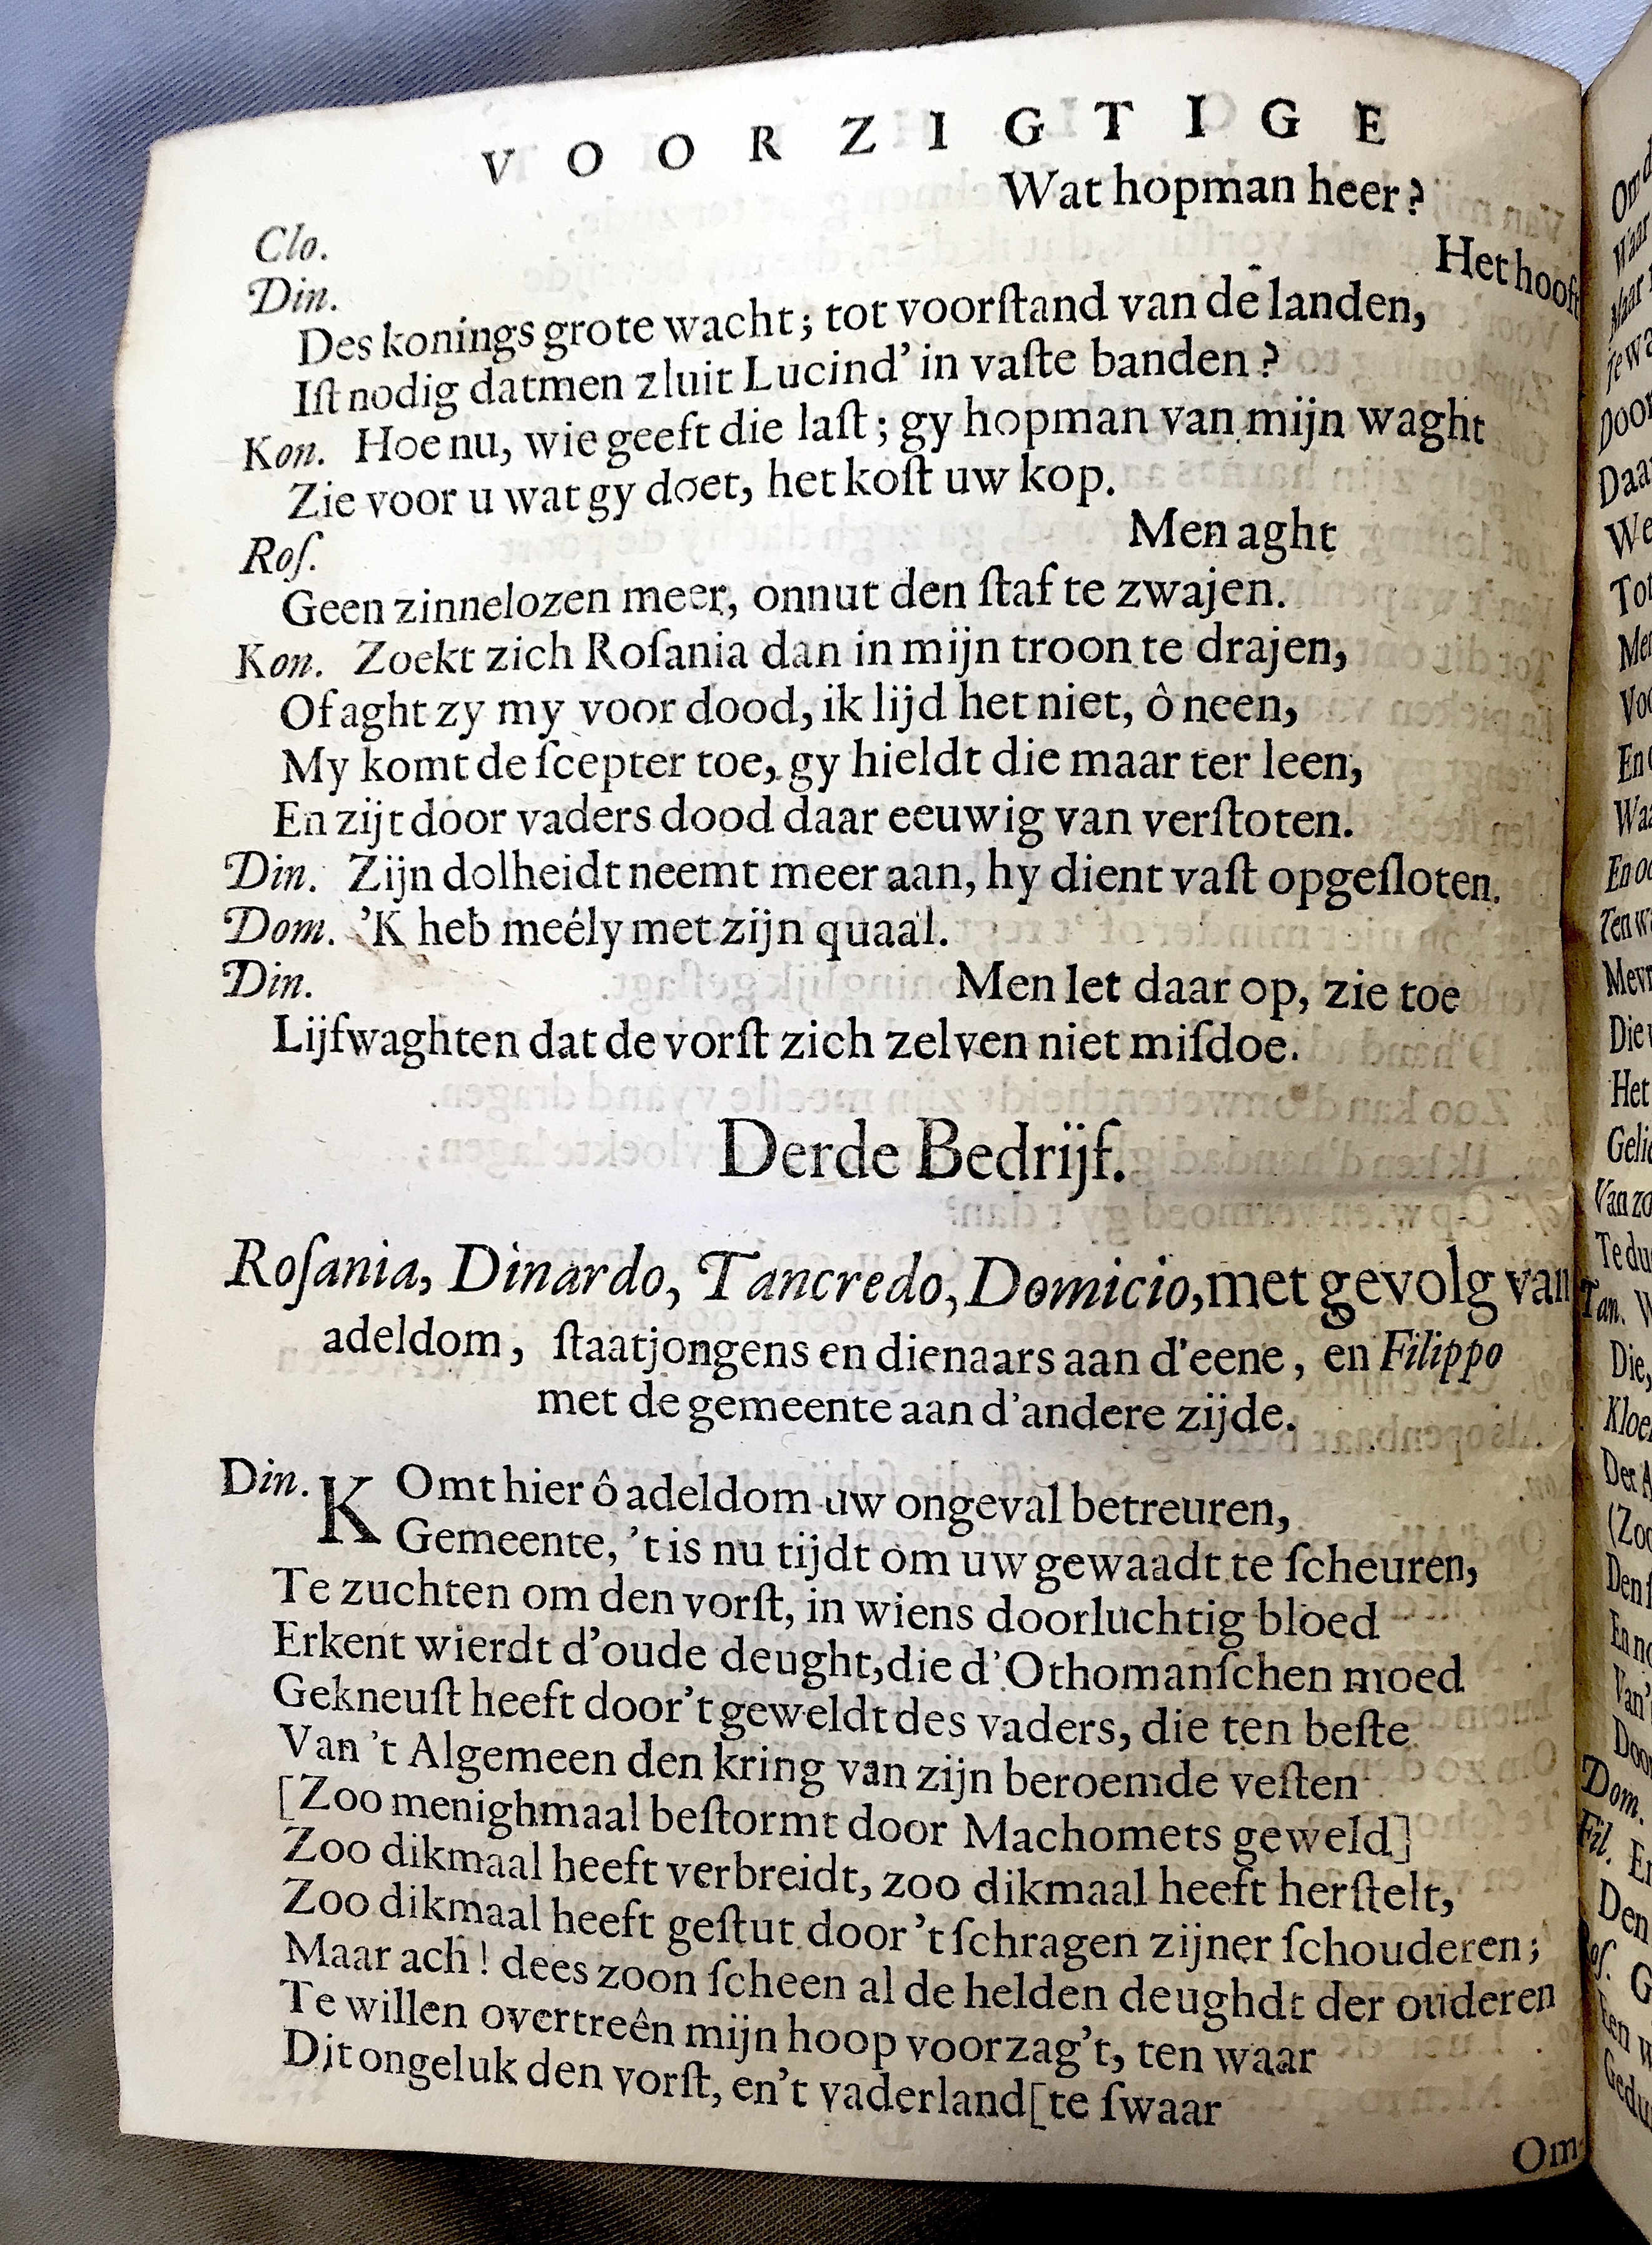 VOORZIGTIGE
Clo. Wat hopman heer?
Din. Het hooft
Des konings grote wacht; tot voorſtand van de landen,
Iſt nodig datmen zluit Lucind' in vaſte banden?
Kon. Hoe nu, wie geeft die laſt; gy hopman van mijn waght
Zie voor u wat gy doet, het koſt uw kop.
Roſ. Men aght
Geen zinnelozen meer, onnut den ſtaf te zwajen.
Kon. Zoekt zich Roſania dan in mijn troon te drajen,
Of aght zy my voor dood, ik lijd het niet, ô neen,
My komt de ſcepter toe, gy hieldt die maar ter leen,
En zijt door vaders dood daar eeuwig van verſtoten.
Din. Zijn dolheidt neemt meer aan, hy dient vaſt opgeſloten.
Dom. 'K heb meély met zijn quaal.
Din. Men let daar op, zie toe
Lijfwaghten dat de vorſt zich zelven niet miſdoe.
Derde Bedrijf.
Roſania, Dinardo, Tancredo, Domicio, met gevolg van
adeldom, ſtaatjongens en dienaars aan d'eene, en Filippo
met de gemeente aan d'andere zijde.
Din. KOmt hier ô adeldom uw ongeval betreuren,
Gemeente, 't is nu tijdt om uw gewaadt te ſcheuren,
Te zuchten om den vorſt, in wiens doorluchtig bloed
Erkent wierdt d'oude deught, die d'Othomanſchen moed
Gekneuſt heeft door't geweldt des vaders, die ten beſte
Van 't Algemeen den kring van zijn beroemde veſten
[Zoo menighmaal beſtormt door Machomets geweld]
Zoo dikmaal heeft verbreidt, zoo dikmaal heeft herſtelt,
Zoo dikmaal heeft geſtut door't ſchragen zijner ſchouderen;
Maar ach! dees zoon ſcheen al de helden deughdt der ouderen
Te willen overtreên mijn hoop voorzag't, ten waar
Dit ongeluk den vorſt, en't vaderland [te ſwaar
Om